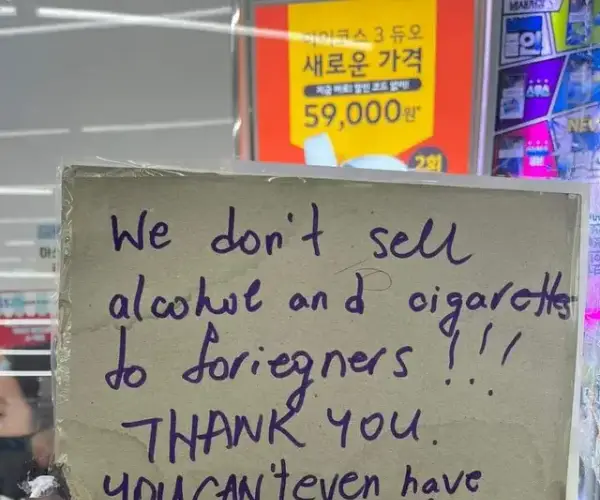 아이코스 3 듀오
새로운 가격
지금 바로! 할인 코드 없이!
59,000원*
2회
NEW
We don't sell
alcohol and cigarettes
to foriegners !!!
THANK YOU.
YOU CAN'T even have